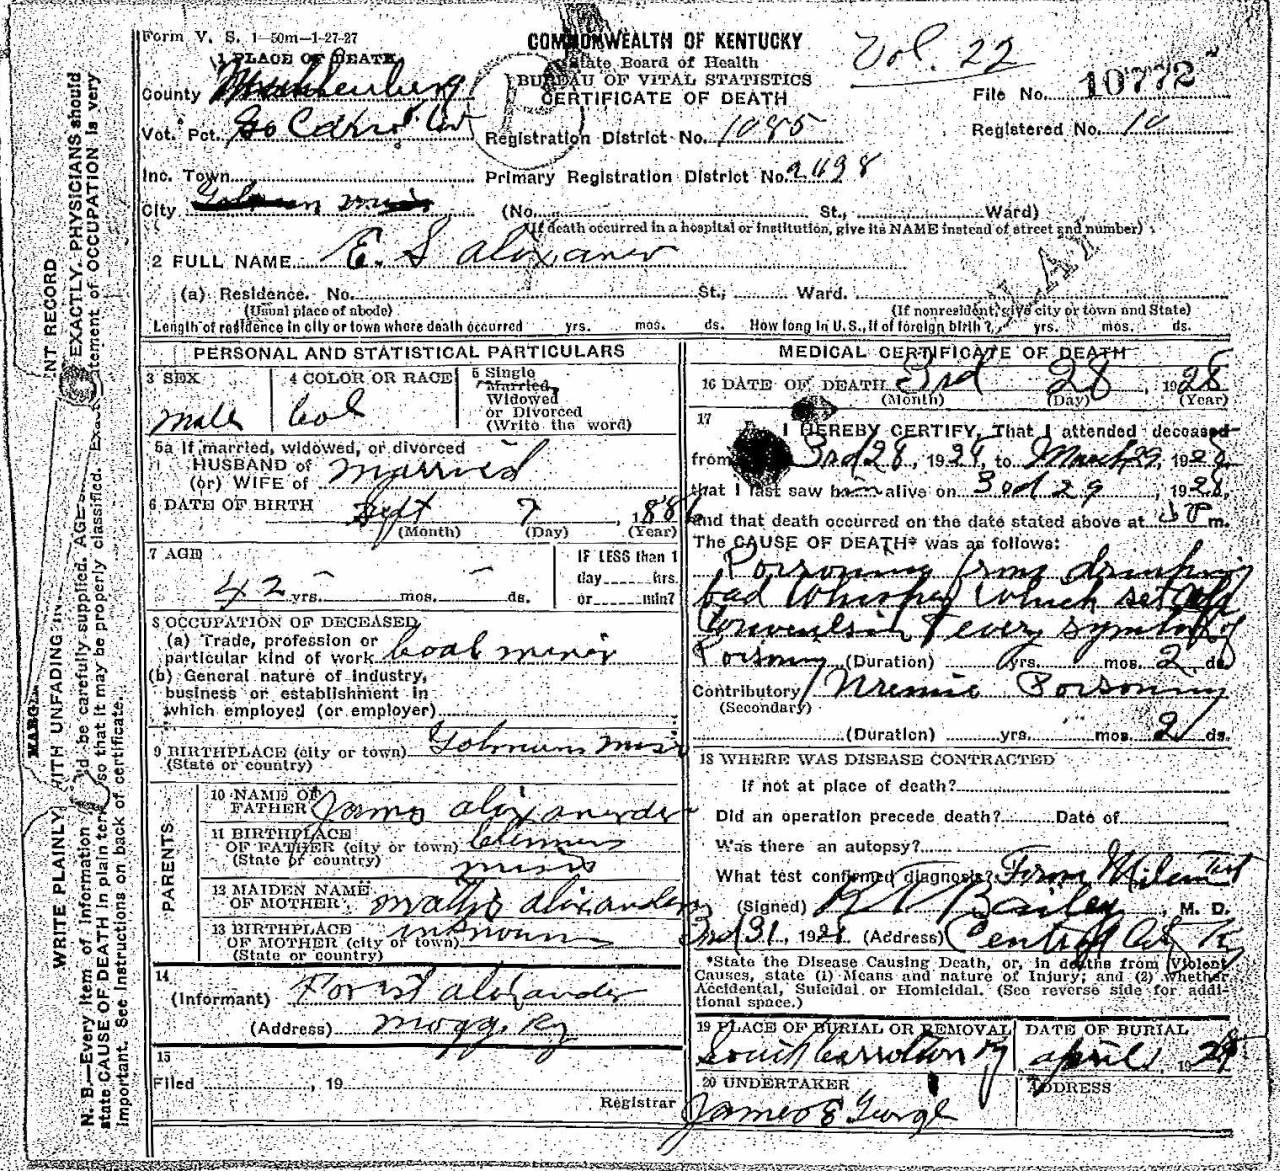 Form V. S. 1—50m—1-27-27
COMMONWEALTH OF KENTUCKY
State Board of Health
BUREAU OF VITAL STATISTICS
CERTIFICATE OF DEATH
Vol. 22
File No. 10772
Registered No. 10
1 PLACE OF DEATH
County Muhlenberg
Vot. Pct. So
Registration District No. 1085
Inc. Town
Primary Registration District No. 2498
City
(No. St., Ward)
(If death occurred in a hospital or institution, give its NAME instead of street and number)
2 FULL NAME E. S alixaner
(a) Residence. No. St., Ward.
(Usual place of abode) (If nonresident, give city or town and State)
Length of residence in city or town where death occurred yrs. mos. ds. How long in U.S., if of foreign birth? yrs. mos. ds.
PERSONAL AND STATISTICAL PARTICULARS
3 SEX
male
4 COLOR OR RACE
Col
5 Single
Married,
Widowed
or Divorced
(Write the word)
5a If married, widowed, or divorced
HUSBAND of
(or) WIFE of
married
6 DATE OF BIRTH Sept 7, 188
(Month) (Day) (Year)
7 AGE
42 yrs. mos. ds.
IF LESS than 1
day hrs.
or min?
8 OCCUPATION OF DECEASED
(a) Trade, profession or
particular kind of work Coal miner
(b) General nature of industry,
business or establishment in
which employed (or employer)
9 BIRTHPLACE (city or town) Miss
(State or country)
PARENTS
10 NAME OF
FATHER James
11 BIRTHPLACE
OF FATHER (city or town)
(State or country) miss
12 MAIDEN NAME
OF MOTHER
13 BIRTHPLACE unknown
OF MOTHER (city or town)
(State or country)
14
(Informant) Forest alexander
(Address) Mogg, Ky
15
Filed , 19
Registrar
MEDICAL CERTIFICATE OF DEATH
16 DATE OF DEATH 3rd 28, 1928
(Month) (Day) (Year)
17
I HEREBY CERTIFY, That I attended deceased
from 3rd 28, 1928, to March 29, 1928
that I last saw him alive on 3rd 29, 1928,
and that death occurred on the date stated above at m.
The CAUSE OF DEATH* was as follows:
Poisoning from drinking
bad Whiskey which set up
& every symptom of
Poisoning (Duration) yrs. mos. 2 ds.
Contributory Uremic Poisoning
(Secondary)
(Duration) yrs. mos. 2 ds.
18 WHERE WAS DISEASE CONTRACTED
If not at place of death?
Did an operation precede death? Date of
Was there an autopsy?
What test confirmed diagnosis?
(Signed) Bailey, M. D.
3rd 31, 1928 (Address) Central City Ky
*State the Disease Causing Death, or, in deaths from Violent
Causes, state (1) Means and nature of Injury; and (2) whether
Accidental, Suicidal or Homicidal. (See reverse side for addi-
tional space.)
19 PLACE OF BURIAL OR REMOVAL
South Carrollton Ky
DATE OF BURIAL
april 1, 1928
20 UNDERTAKER
James E George
ADDRESS
MARG
WRITE PLAINLY WITH UNFADING IN
NT RECORD
N. B.—Every item of information
'd be carefully supplied. AGE
EXACTLY. PHYSICIANS should
state CAUSE OF DEATH in plain ter
so that it may be properly classified. Exa
tement of OCCUPATION is very
important. See instructions on back of certificate.